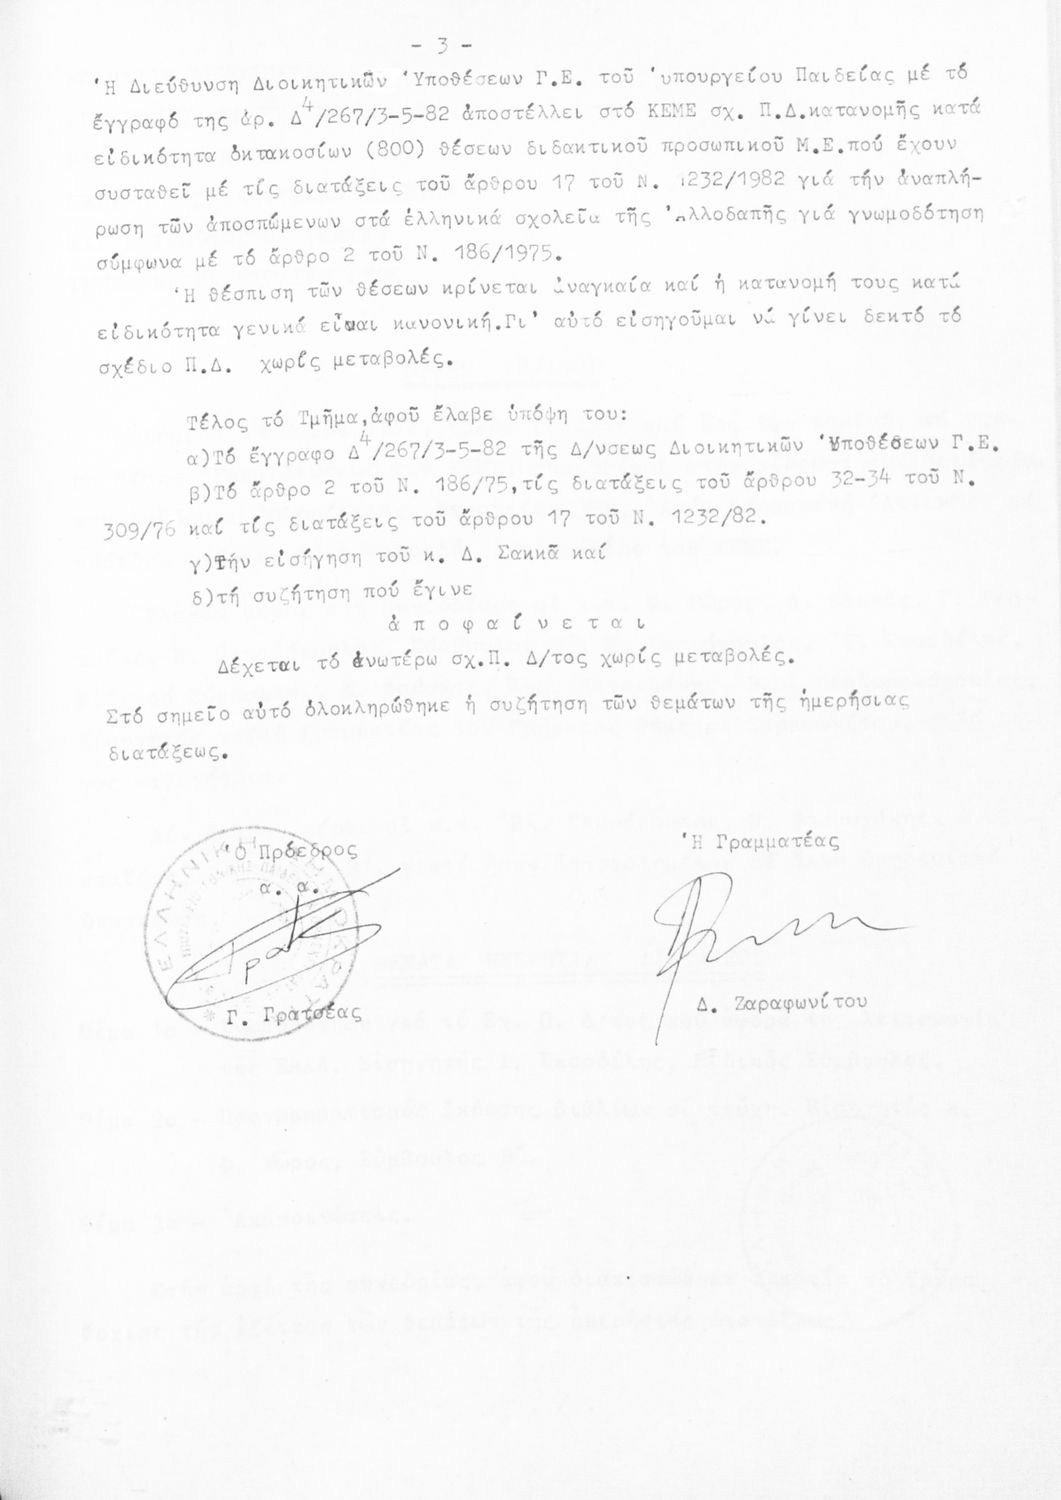 - 3 -
Ἡ Διεύθυνση Διοικητικῶν Ὑποθέσεων Γ.Ε. τοῦ Ὑπουργείου Παιδείας μέ τό
ἔγγραφό της ἀρ. Δ4/267/3-5-82 ἀποστέλλει στό ΚΕΜΕ σχ. Π.Δ.κατανομῆς κατά
εἰδικότητα ὀκτακοσίων (800) θέσεων διδακτικοῦ προσωπικοῦ Μ.Ε.πού ἔχουν
συσταθεῖ μέ τίς διατάξεις τοῦ ἄρθρου 17 τοῦ Ν. 1232/1982 γιά τήν ἀναπλή-
ρωση τῶν ἀποσπώμενων στά ἑλληνικά σχολεῖα τῆς Ἀλλοδαπῆς γιά γνωμοδότηση
σύμφωνα μέ τό ἄρθρο 2 τοῦ Ν. 186/1975.
Ἡ θέσπιση τῶν θέσεων κρίνεται ἀναγκαία καί ἡ κατανομή τους κατά
εἰδικότητα γενικά εἶναι κανονική.Γι' αὐτό εἰσηγοῦμαι νά γίνει δεκτό τό
σχέδιο Π.Δ. χωρίς μεταβολές.
Τέλος τό Τμῆμα,ἀφοῦ ἔλαβε ὑπόψη του:
α)Τό ἔγγραφο Δ4/267/3-5-82 τῆς Δ/νσεως Διοικητικῶν Ὑποθέσεων Γ.Ε.
β)Τό ἄρθρο 2 τοῦ Ν. 186/75,τίς διατάξεις τοῦ ἄρθρου 32-34 τοῦ Ν.
309/76 καί τίς διατάξεις τοῦ ἄρθρου 17 τοῦ Ν. 1232/82.
γ)Τήν εἰσήγηση τοῦ κ. Δ. Σακκᾶ καί
δ)τή συζήτηση πού ἔγινε
ἀ π ο φ α ί ν ε τ α ι
Δέχεται τό ἀνωτέρω σχ.Π. Δ/τος χωρίς μεταβολές.
Στό σημεῖο αὐτό ὁλοκληρώθηκε ἡ συζήτηση τῶν θεμάτων τῆς ἡμερήσιας
διατάξεως.
Ὁ Πρόεδρος
α. α.
Γ. Γρατσέας
Ἡ Γραμματέας
Δ. Ζαραφωνίτου